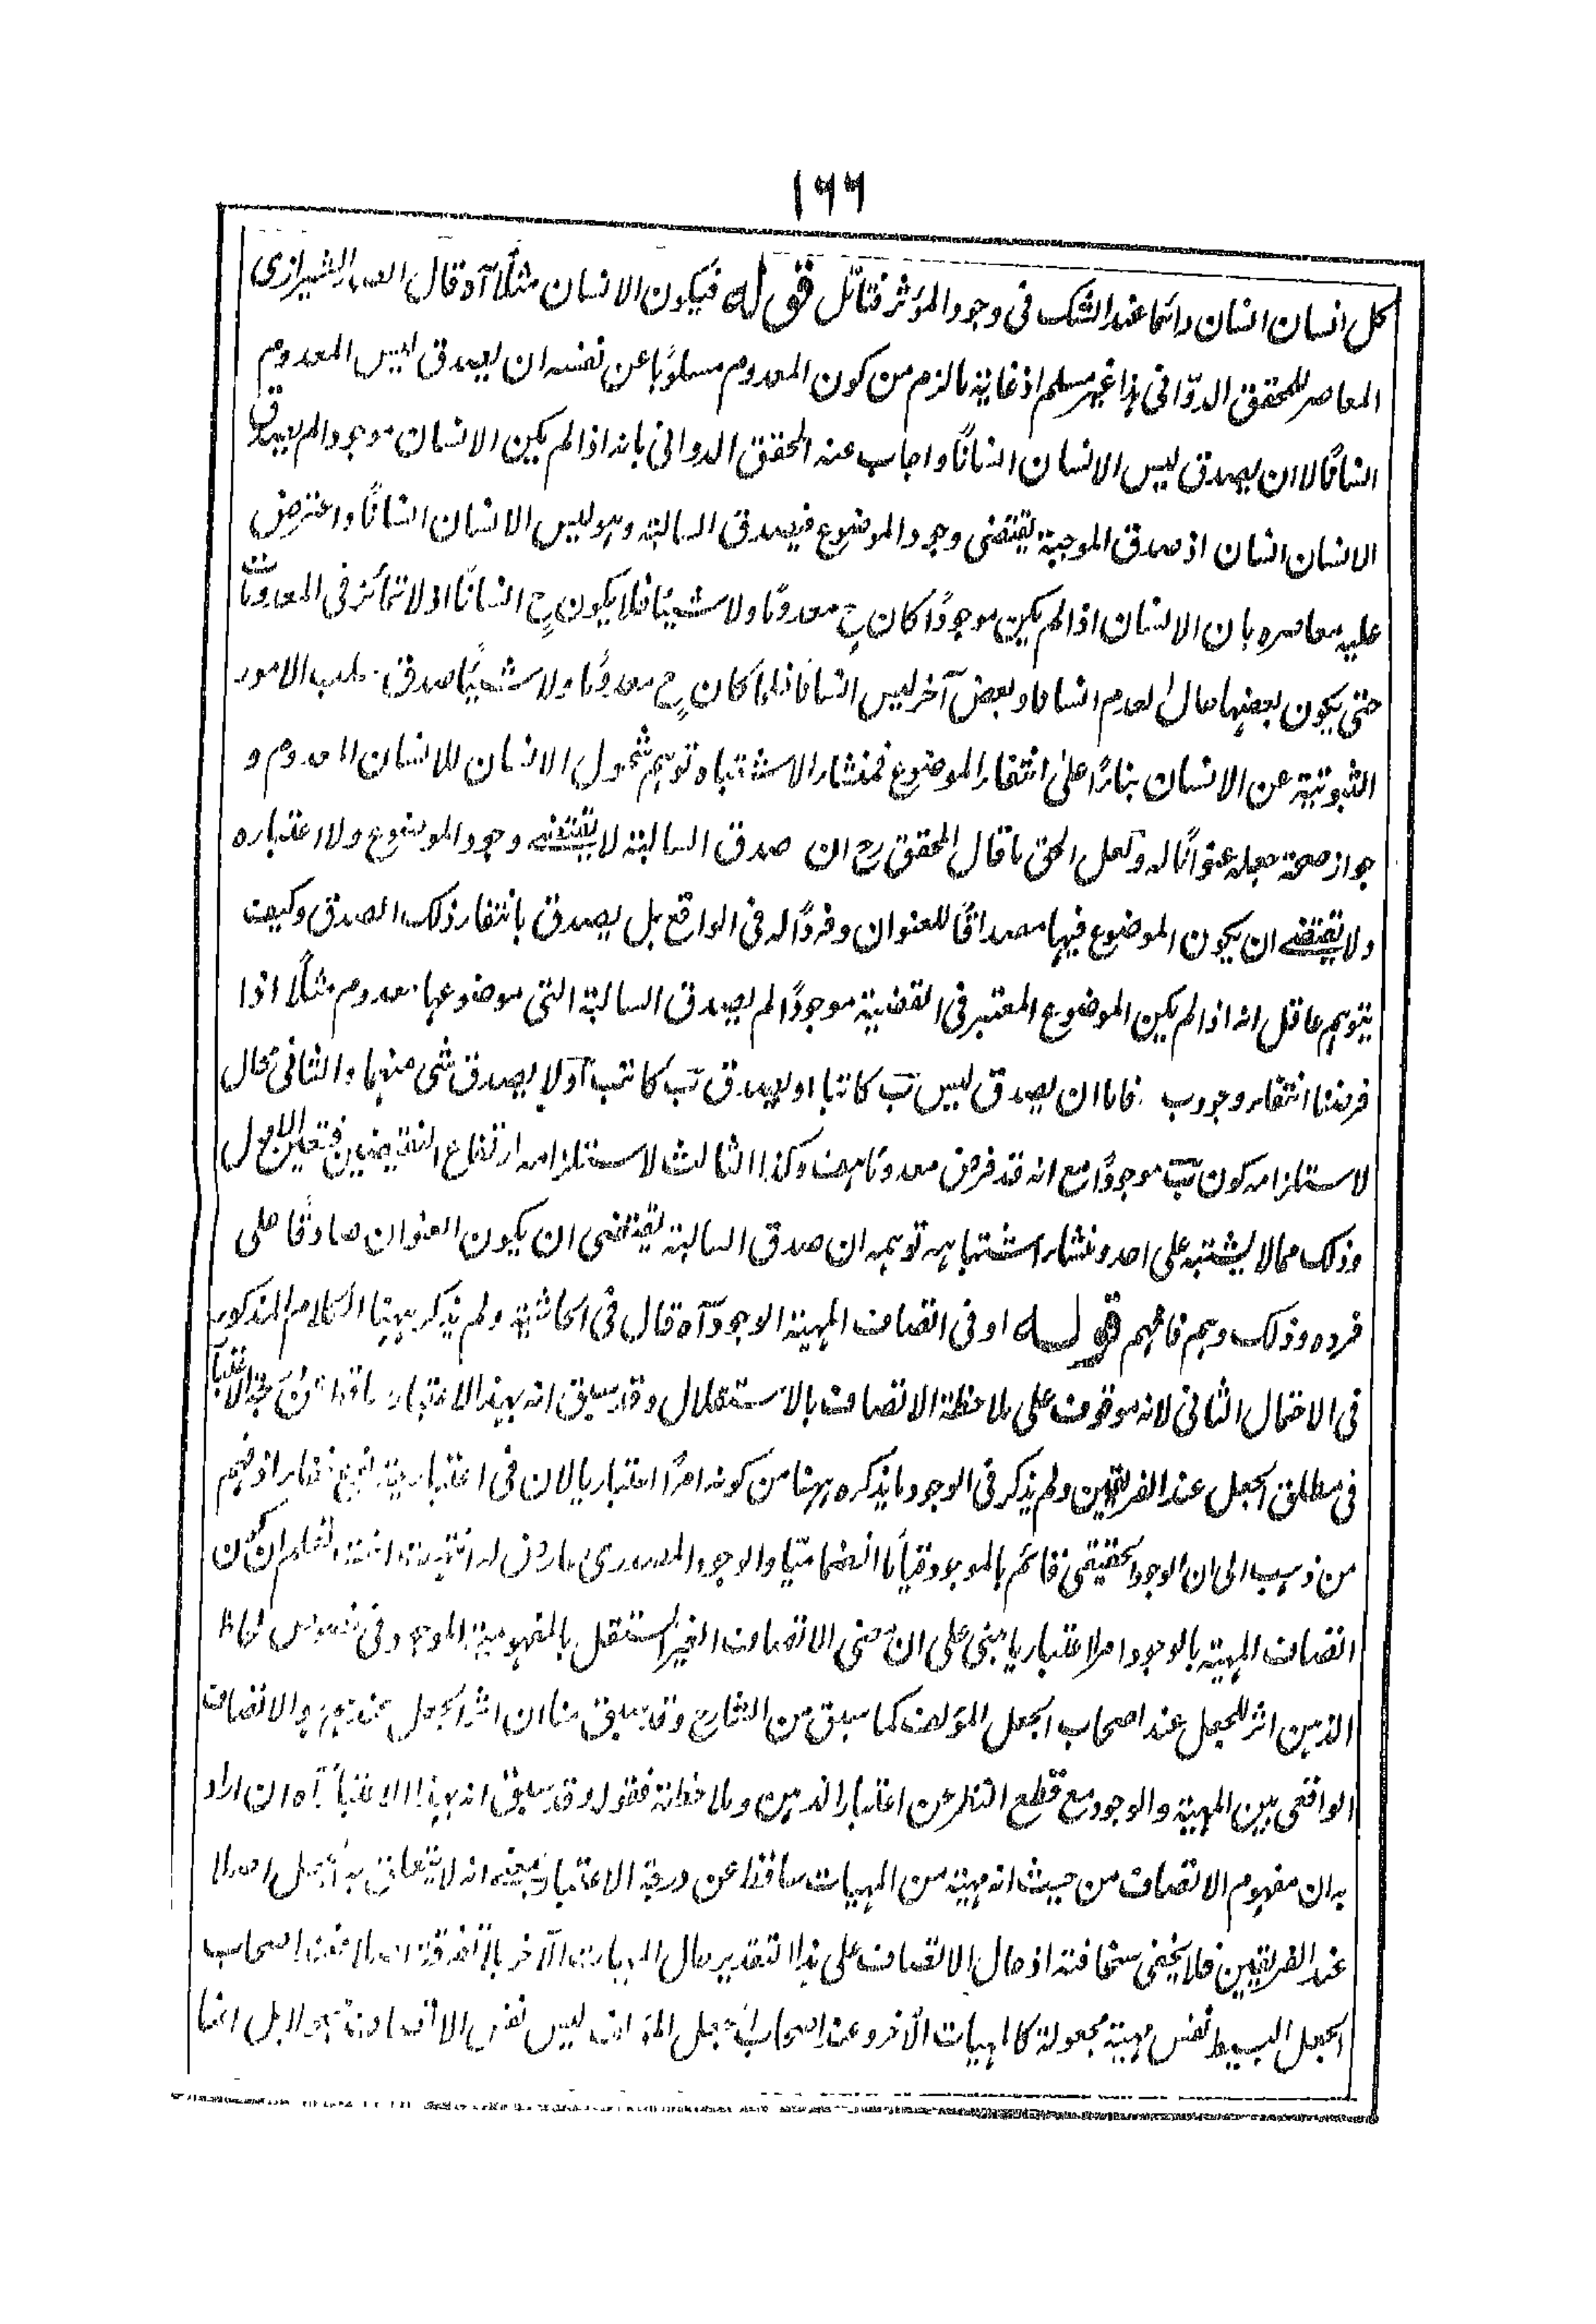 ١٦٦
كل انسان انسان دائما عند الشك فى وجود المؤثر فتامل قوله فيكون الانسان مثلا آه قال الصدر الشيرازى
المعاصر للمحقق الدوّانى هذا غير مسلم اذ غاية ما لزم من كون المعدوم مسلوبا عن نفسه ان يصدق ليس المعدوم
انسانا لا ان يصدق ليس الانسان انسانا واجاب عنه المحقق الدوانى بانه اذا لم يكن الانسان موجودا لم يصدق
الانسان انسان اذ صدق الموجبة يقتضى وجود الموضوع فيصدق السالبة وهو ليس الانسان انسانا واعترض
عليه معاصره بان الانسان اذا لم يكن موجودًا كان ح معدومًا ولا شيئا فلا يكون ح انسانًا اذ لا تمائز فى المعدومات
حتى يكون بعضها حال العدم انسانا وبعض آخر ليس انسانا فلما كان ح معدومًا ولا شيئًا صدق سلب الامور
الثبوتية عن الانسان بناءً على انتفاء الموضوع فمنشاء الاشتباه توهم شمول الانسان للانسان المعدوم و
جواز صحة جعله عنوانًا له ولعل الحق ما قال المحقق رح ان صدق السالبة لا يقتضى وجود الموضوع ولا اعتباره
ولا يقتضى ان يكون الموضوع فيها مصداقًا للعنوان وفردًا له فى الواقع بل يصدق بانتفاء ذلك الصدق وكيف
يتوهم عاقل انه اذا لم يكن الموضوع المعتبر فى القضية موجودًا لم يصدق السالبة التى موضوعها معدوم مثلًا اذا
فرضنا انتفاء وجود ب فاما ان يصدق ليس ب كاتبا او يصدق ب كاتب او لا يصدق شى منهما والثانى محال
لاستلزامه كون ب موجودًا مع انه قد فرض معدوما هف وكذا الثالث لاستلزامه ارتفاع النقيضين فتعين الاول
وذلك مما لا يشتبه على احد ومنشاء اشتباهه توهمه ان صدق السالبة يقتضى ان يكون العنوان صادقًا على
فرده وذلك وهم فافهم قوله او فى اتصاف المهية الوجود آه قال فى الحاشية ولم يذكر ههنا الكلام المذكور
فى الاحتمال الثانى لانه موقوف على ملاحظة الاتصاف بالاستقلال وقد سبق انه بهذا الاعتبار ساقط عن درجة الاعتبار
فى مطلق الجعل عند الفريقين ولم يذكر فى الوجود ما يذكره ههنا من كونه امرًا اعتباريا لان فى اعتباريته نوع خفاء اذ منهم
من ذهب الى ان الوجود الحقيقى قائم بالموجود قياما انضماميا والوجود المصدرى عارض له انتهت فاعلم ان كون
اتصاف المهية بالوجود امرا اعتباريا مبنى على ان معنى الاتصاف الغير المستقل بالمفهومية الموجود فى خصوص لحاظ
الذهن اثر للجعل عند اصحاب الجعل المؤلف كما سبق من الشارح وقد سبق منا ان اثر الجعل عندهم هو الاتصاف
الواقعى بين المهية والوجود مع قطع النظر عن اعتبار الذهن وملاحظته فقوله وقد سبق انه بهذا الاعتبار آه ان اراد
به ان مفهوم الاتصاف من حيث انه مهية من المهيات ساقط عن درجة الاعتبار بمعنى انه لا يتعلق به الجعل اصلا
عند الفريقين فلا يخفى سخافته اذ حال الاتصاف على هذا التقدير حال المهيات الأخر بلا تفرقة اصلا فعند اصحاب
الجعل البسيط نفس مهيته مجعولة كالمهيات الأخر وعند اصحاب الجعل المؤلف ليس نفس الاتصاف مجعولا بل انما